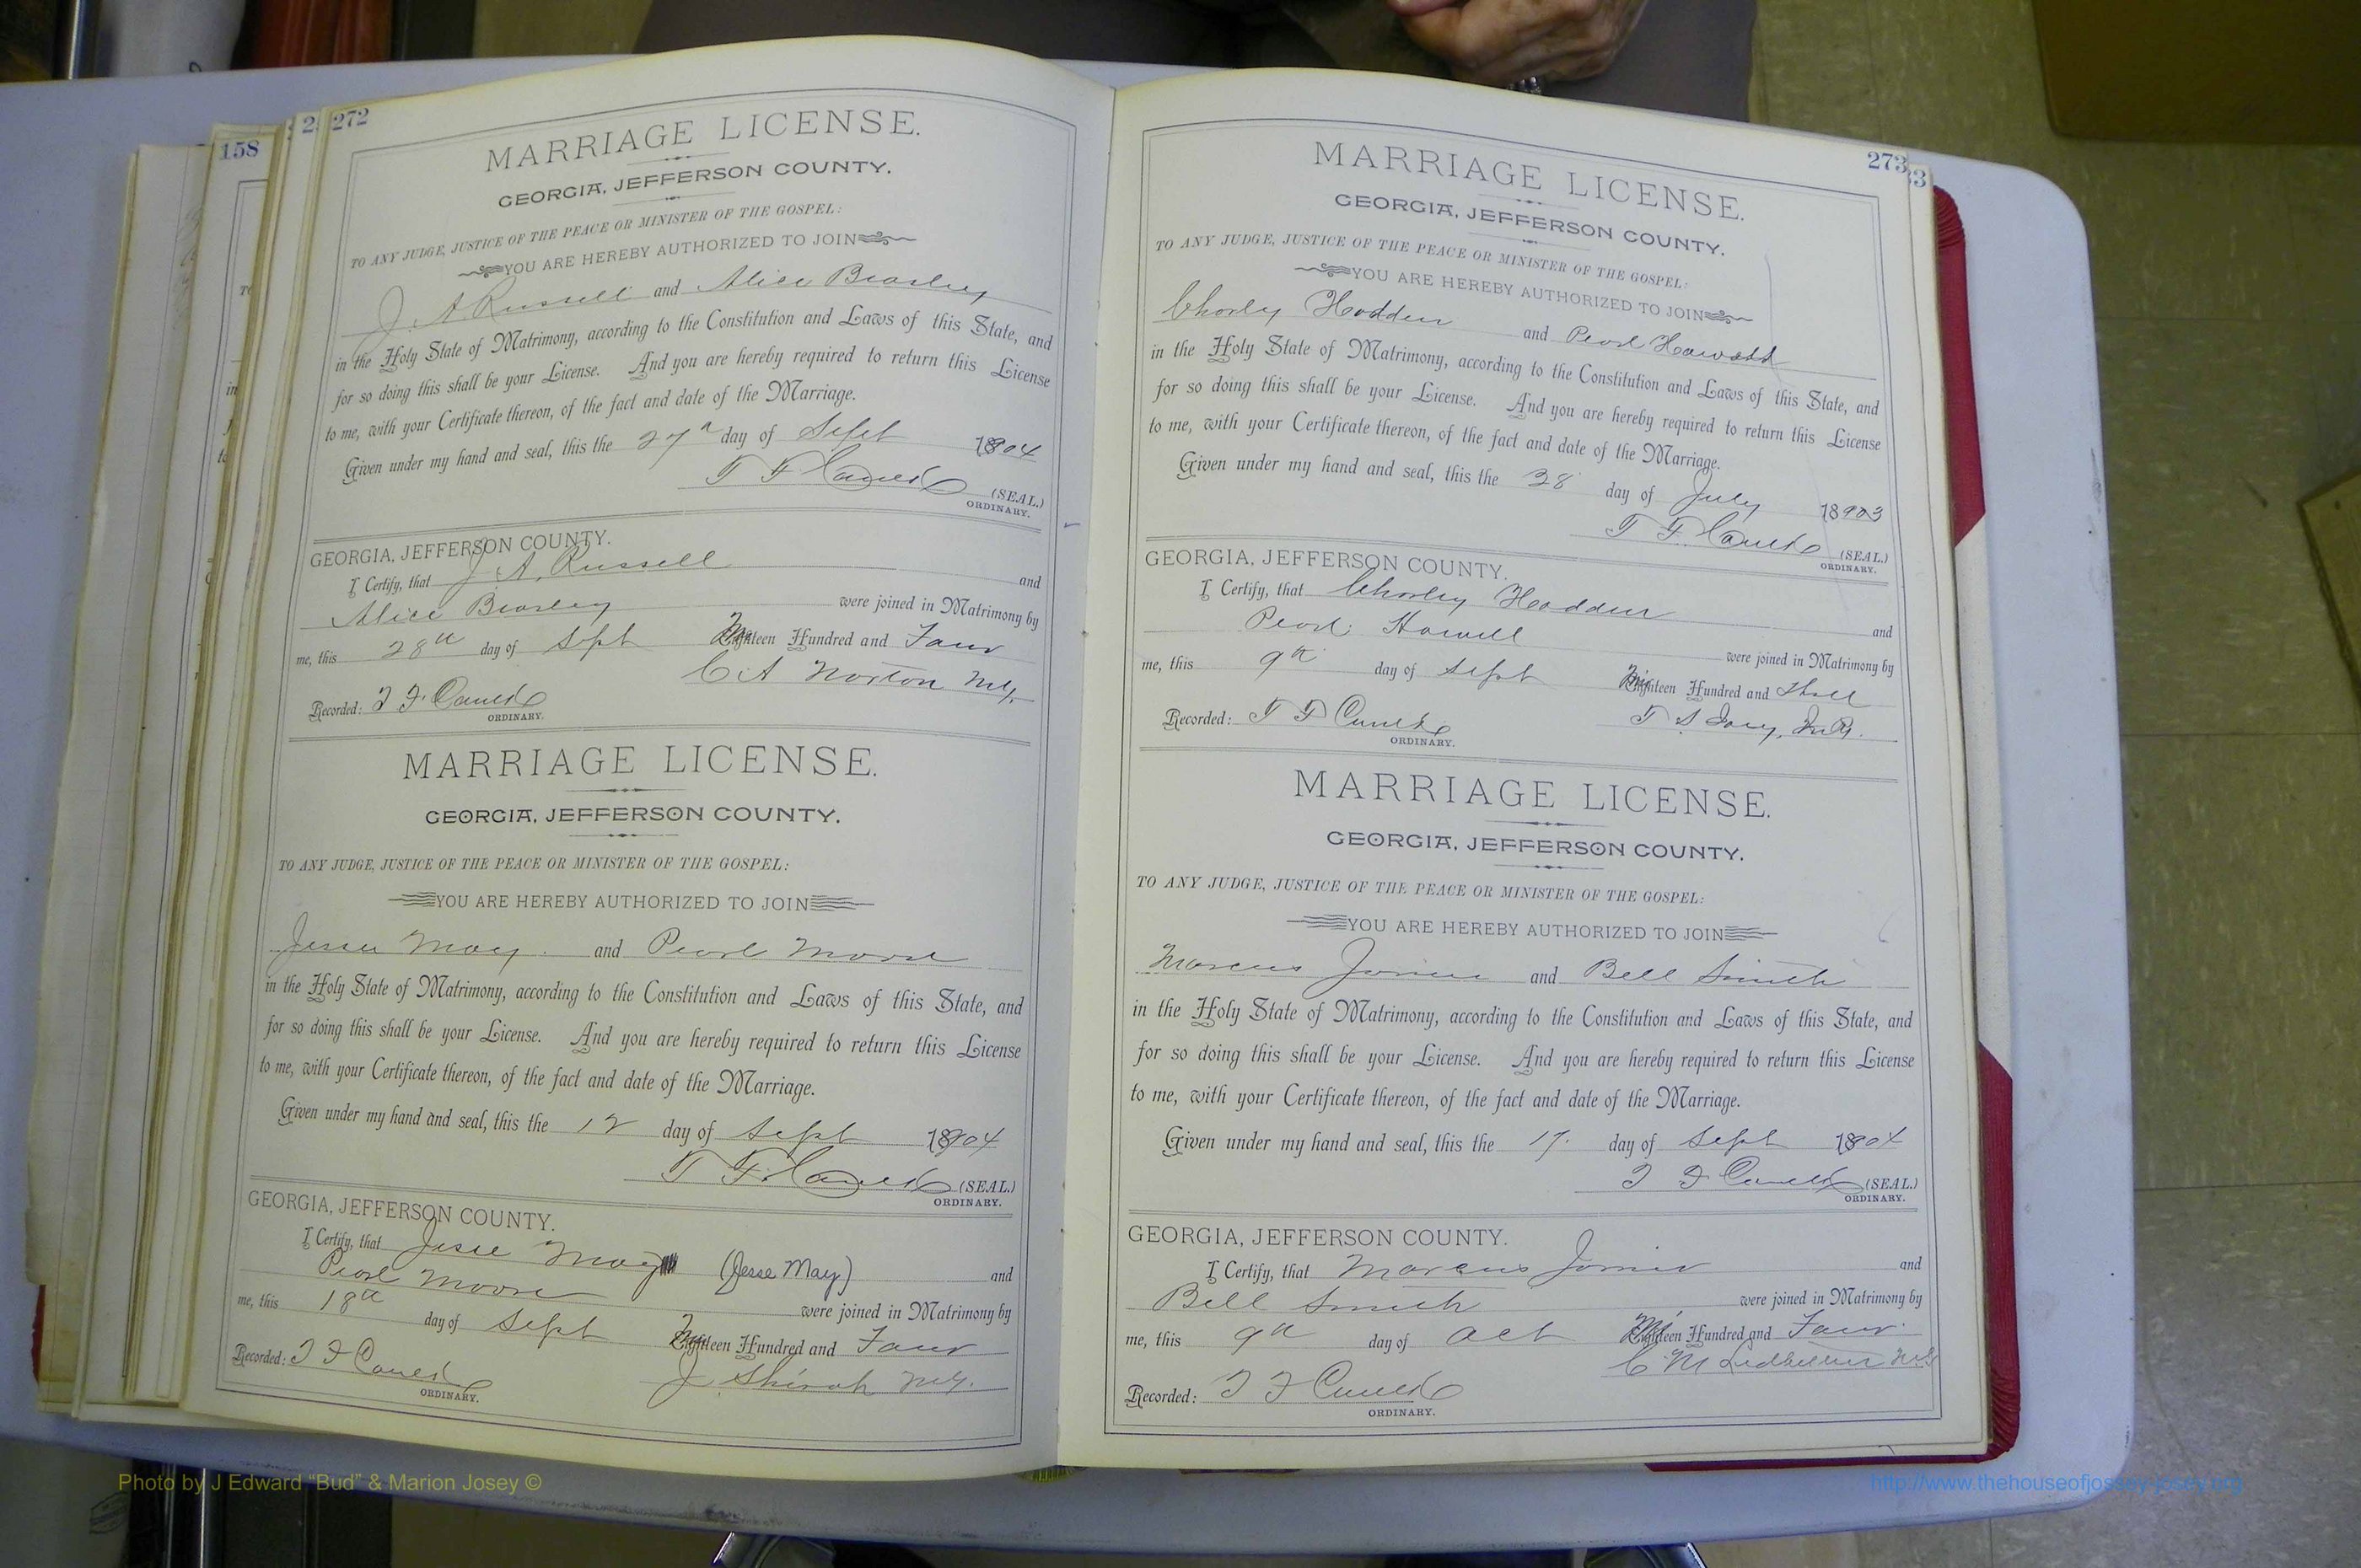 158
2
272
MARRIAGE LICENSE.
GEORGIA, JEFFERSON COUNTY.
TO ANY JUDGE, JUSTICE OF THE PEACE OR MINISTER OF THE GOSPEL:
YOU ARE HEREBY AUTHORIZED TO JOIN
J. A. Russell and Alice Beasley
in the Holy State of Matrimony, according to the Constitution and Laws of this State, and
for so doing this shall be your License. And you are hereby required to return this License
to me, with your Certificate thereon, of the fact and date of the Marriage.
Given under my hand and seal, this the 27th day of Sept 1904
T F (SEAL.)
ORDINARY.
GEORGIA, JEFFERSON COUNTY.
I Certify, that J. A. Russell and
Alice Beasley were joined in Matrimony by
me, this 28th day of Sept Hundred and Four
C A Norton M.G.
Recorded: T F
ORDINARY.
MARRIAGE LICENSE.
GEORGIA, JEFFERSON COUNTY.
TO ANY JUDGE, JUSTICE OF THE PEACE OR MINISTER OF THE GOSPEL:
YOU ARE HEREBY AUTHORIZED TO JOIN
Jesse May and Pearl Moore
in the Holy State of Matrimony, according to the Constitution and Laws of this State, and
for so doing this shall be your License. And you are hereby required to return this License
to me, with your Certificate thereon, of the fact and date of the Marriage.
Given under my hand and seal, this the 12 day of Sept 1904
T F (SEAL.)
ORDINARY.
GEORGIA, JEFFERSON COUNTY.
I Certify, that Jesse May (Jesse May) and
Pearl Moore were joined in Matrimony by
me, this 18th day of Sept Hundred and Four
J Shirah M.G.
Recorded: T F
ORDINARY.
273
3
MARRIAGE LICENSE.
GEORGIA, JEFFERSON COUNTY.
TO ANY JUDGE, JUSTICE OF THE PEACE OR MINISTER OF THE GOSPEL:
YOU ARE HEREBY AUTHORIZED TO JOIN
Charley Hadden and Pearl
in the Holy State of Matrimony, according to the Constitution and Laws of this State, and
for so doing this shall be your License. And you are hereby required to return this License
to me, with your Certificate thereon, of the fact and date of the Marriage.
Given under my hand and seal, this the 28 day of July 18903
T F (SEAL.)
ORDINARY.
GEORGIA, JEFFERSON COUNTY.
I Certify, that Charley Hadden and
Pearl Howell were joined in Matrimony by
me, this 9th day of Sept Hundred and
T S
Recorded: T F
ORDINARY.
MARRIAGE LICENSE.
GEORGIA, JEFFERSON COUNTY.
TO ANY JUDGE, JUSTICE OF THE PEACE OR MINISTER OF THE GOSPEL:
YOU ARE HEREBY AUTHORIZED TO JOIN
Marcus Joiner and Bell Smith
in the Holy State of Matrimony, according to the Constitution and Laws of this State, and
for so doing this shall be your License. And you are hereby required to return this License
to me, with your Certificate thereon, of the fact and date of the Marriage.
Given under my hand and seal, this the 17 day of Sept 1904
T F (SEAL.)
ORDINARY.
GEORGIA, JEFFERSON COUNTY.
I Certify, that Marcus Joiner and
Bell Smith were joined in Matrimony by
me, this 9th day of Oct Hundred and Four
C M Ledbetter
Recorded: T F
ORDINARY.
Photo by J Edward “Bud” & Marion Josey ©
http://www.thehouseofjossey-josey.org